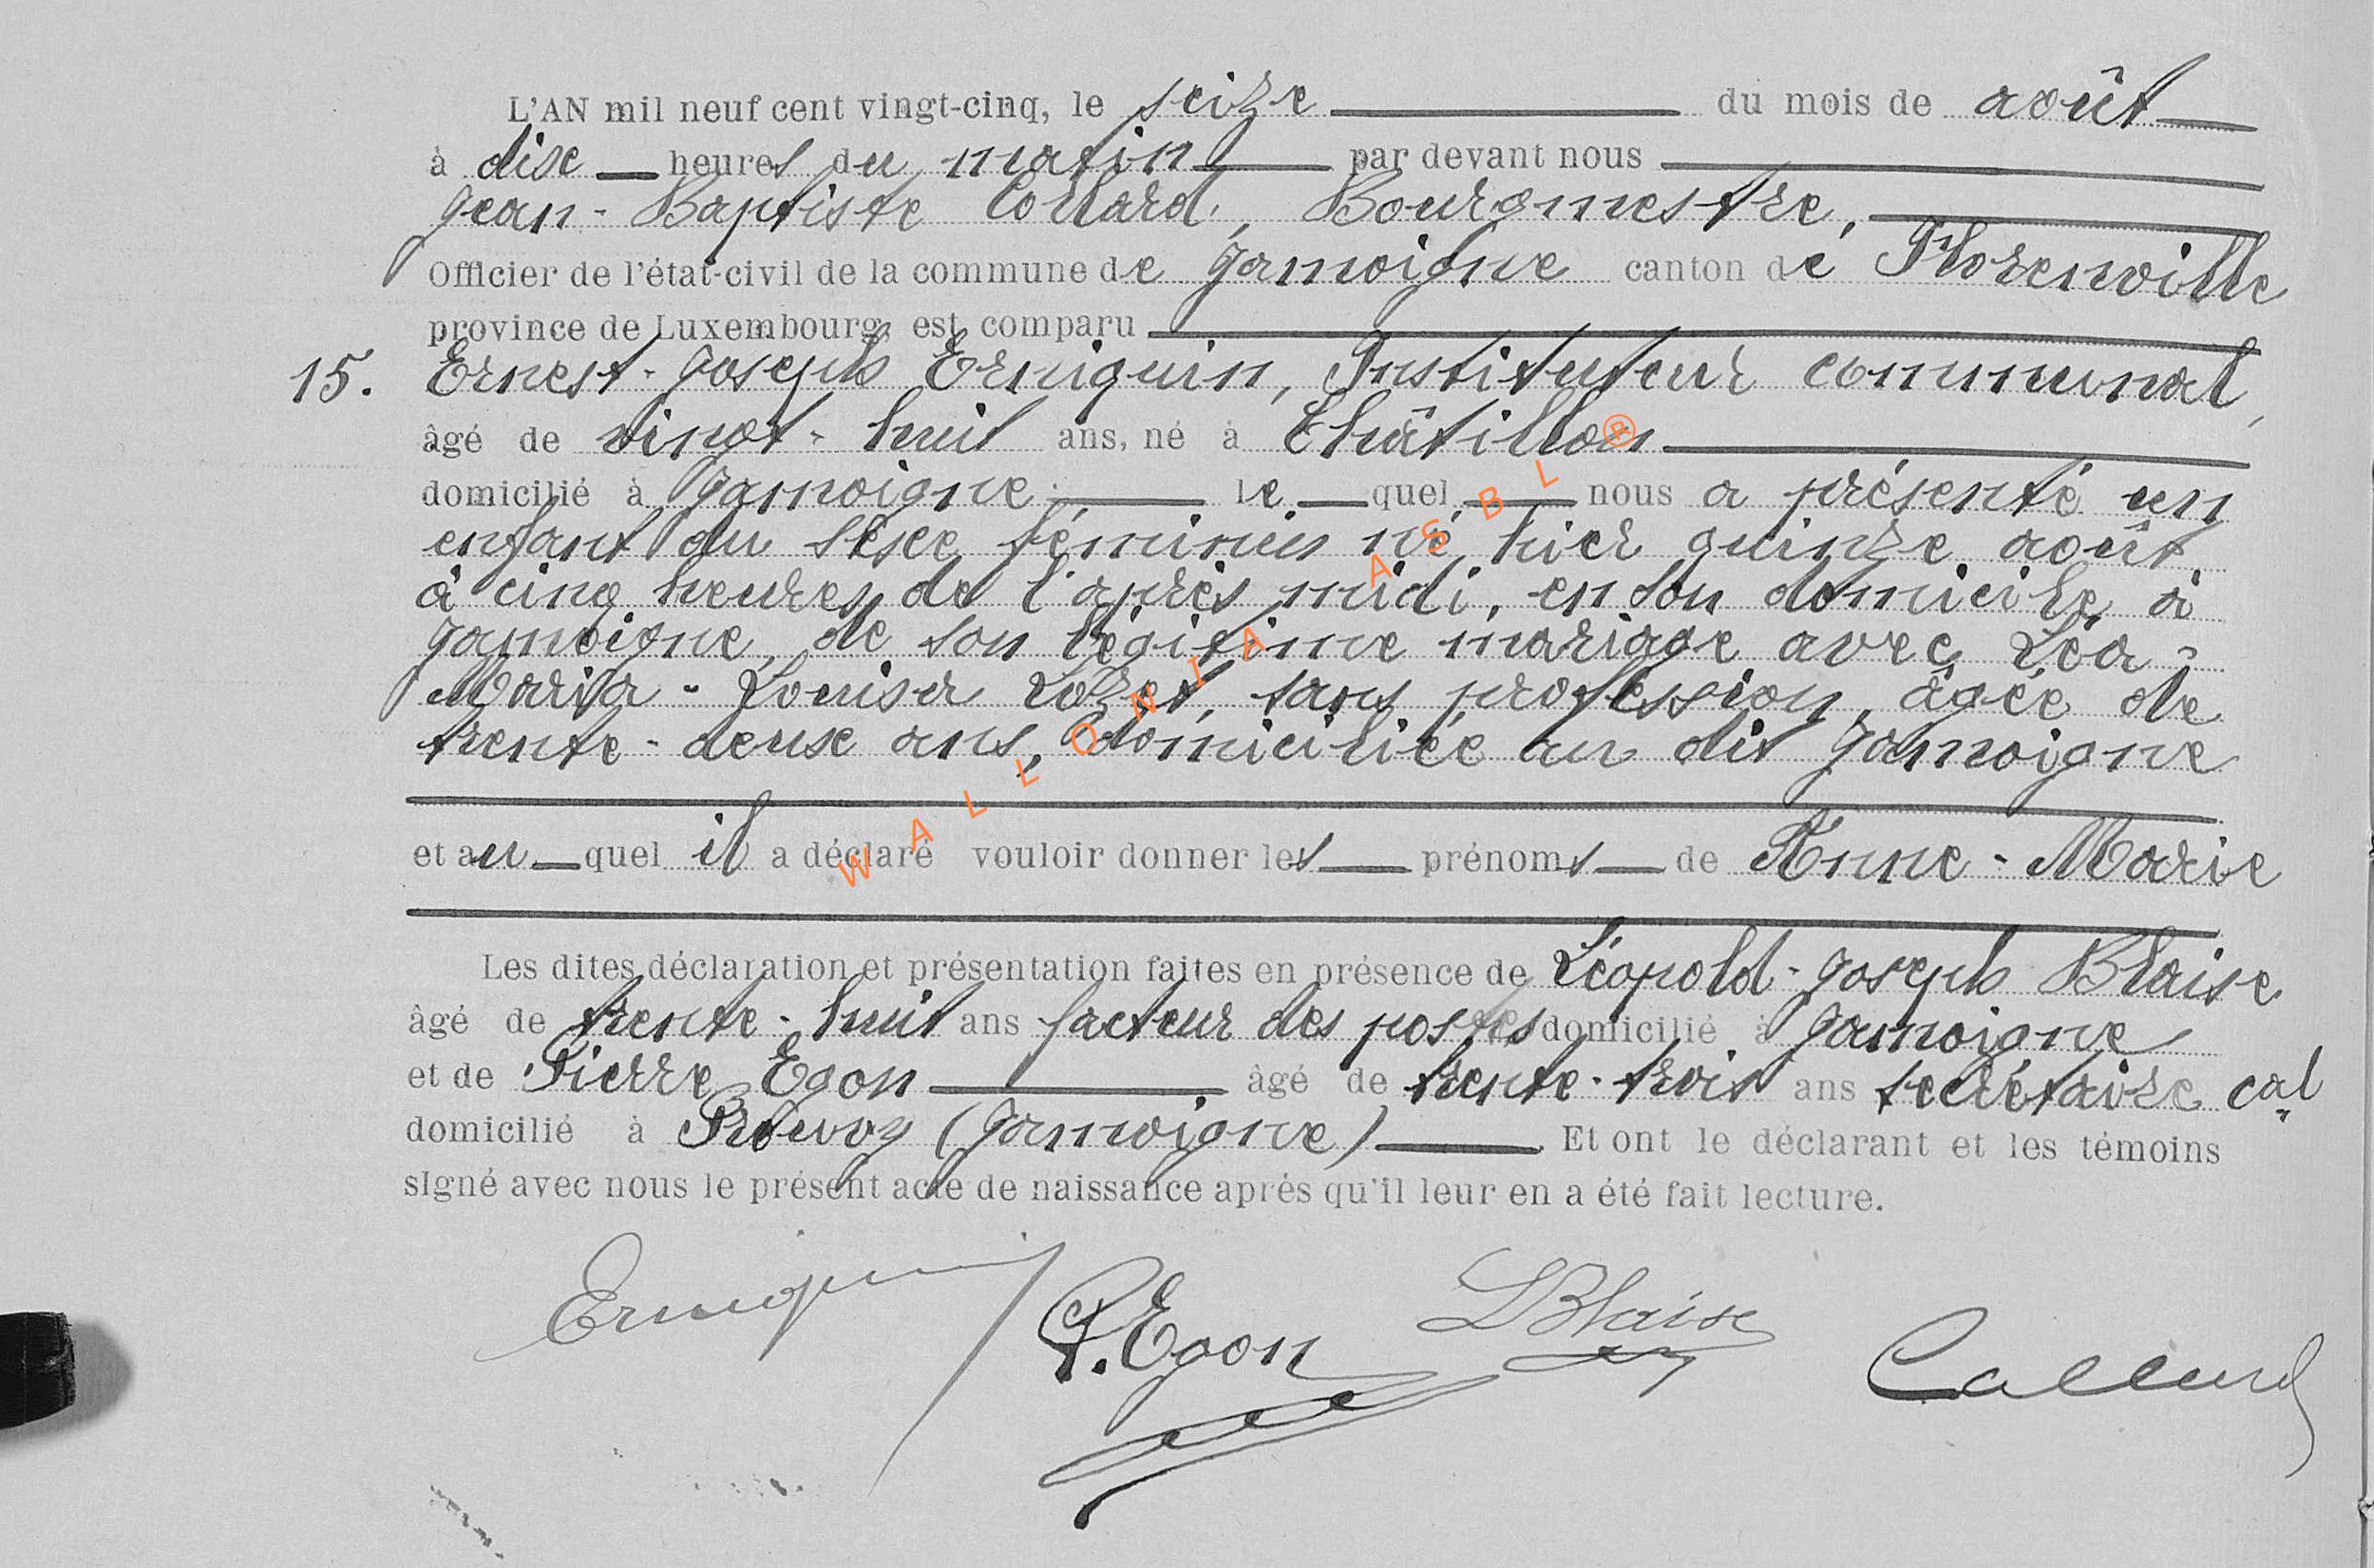 L'AN mil neuf cent vingt-cinq, le seize du mois de août
à dix heures du matin par devant nous
Jean-Baptiste Collard, Bourgmestre,
Officier de l'état-civil de la commune de Jamoigne canton de Florenville
province de Luxembourg, est comparu
15. Ernest-Joseph Erniquin, Instituteur communal,
âgé de vingt-huit ans, né à Châtillon
domicilié à Jamoigne le quel nous a présenté un
enfant du sexe féminin né hier quinze août
à cinq heures de l'après midi, en son domicile à
Jamoigne, de son légitime mariage avec Léa-
Maria-Louisa Lozet, sans profession, âgée de
trente-deux ans, domiciliée au dit Jamoigne
et au quel il a déclaré vouloir donner les prénoms de Anne-Marie
Les dites déclaration et présentation faites en présence de Léopold-Joseph Blaise
âgé de trente-huit ans facteur des postes domicilié à Jamoigne
et de Pierre Egon âgé de trente-trois ans secrétaire cal
domicilié à Prouvoy (Jamoigne) Et ont le déclarant et les témoins
signé avec nous le présent acte de naissance après qu'il leur en a été fait lecture.
Erniquin P. Egon LBlaise Collard
WALLONIA ASBL ®